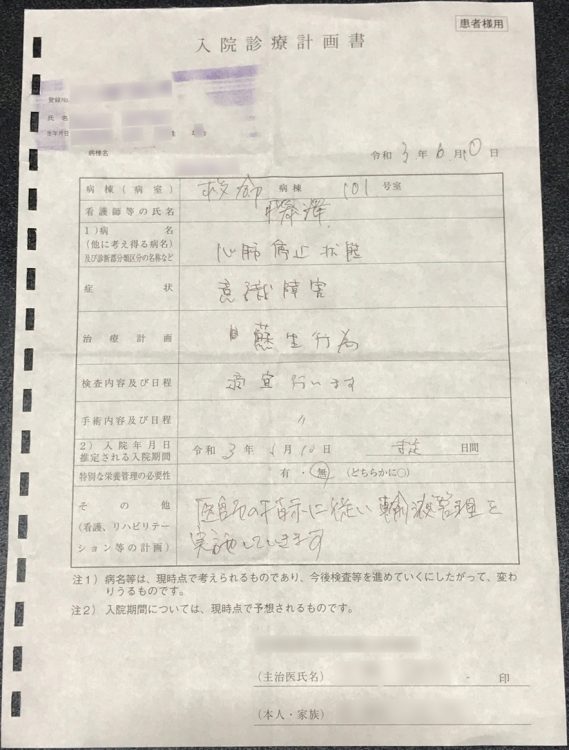 患者様用
入院診療計画書
登録No.
氏名
生年月日 年 生
病棟名
令和 3 年 6 月 10 日
病棟(病室) 救命 病棟 101 号室
看護師等の氏名
1)病名
(他に考え得る病名)
及び診断群分類区分の名称など
心肺停止状態
症状 意識障害
治療計画 蘇生行為
検査内容及び日程 適宜行います
手術内容及び日程 〃
2)入院年月日
推定される入院期間
令和 3 年 6 月 10 日 日間
特別な栄養管理の必要性 有・無 (どちらかに○)
その他
(看護、リハビリテー
ション等の計画)
医師の指示に従い輸液管理を
実施していきます
注1) 病名等は、現時点で考えられるものであり、今後検査等を進めていくにしたがって、変わ
りうるものです。
注2) 入院期間については、現時点で予想されるものです。
(主治医氏名) 印
(本人・家族)